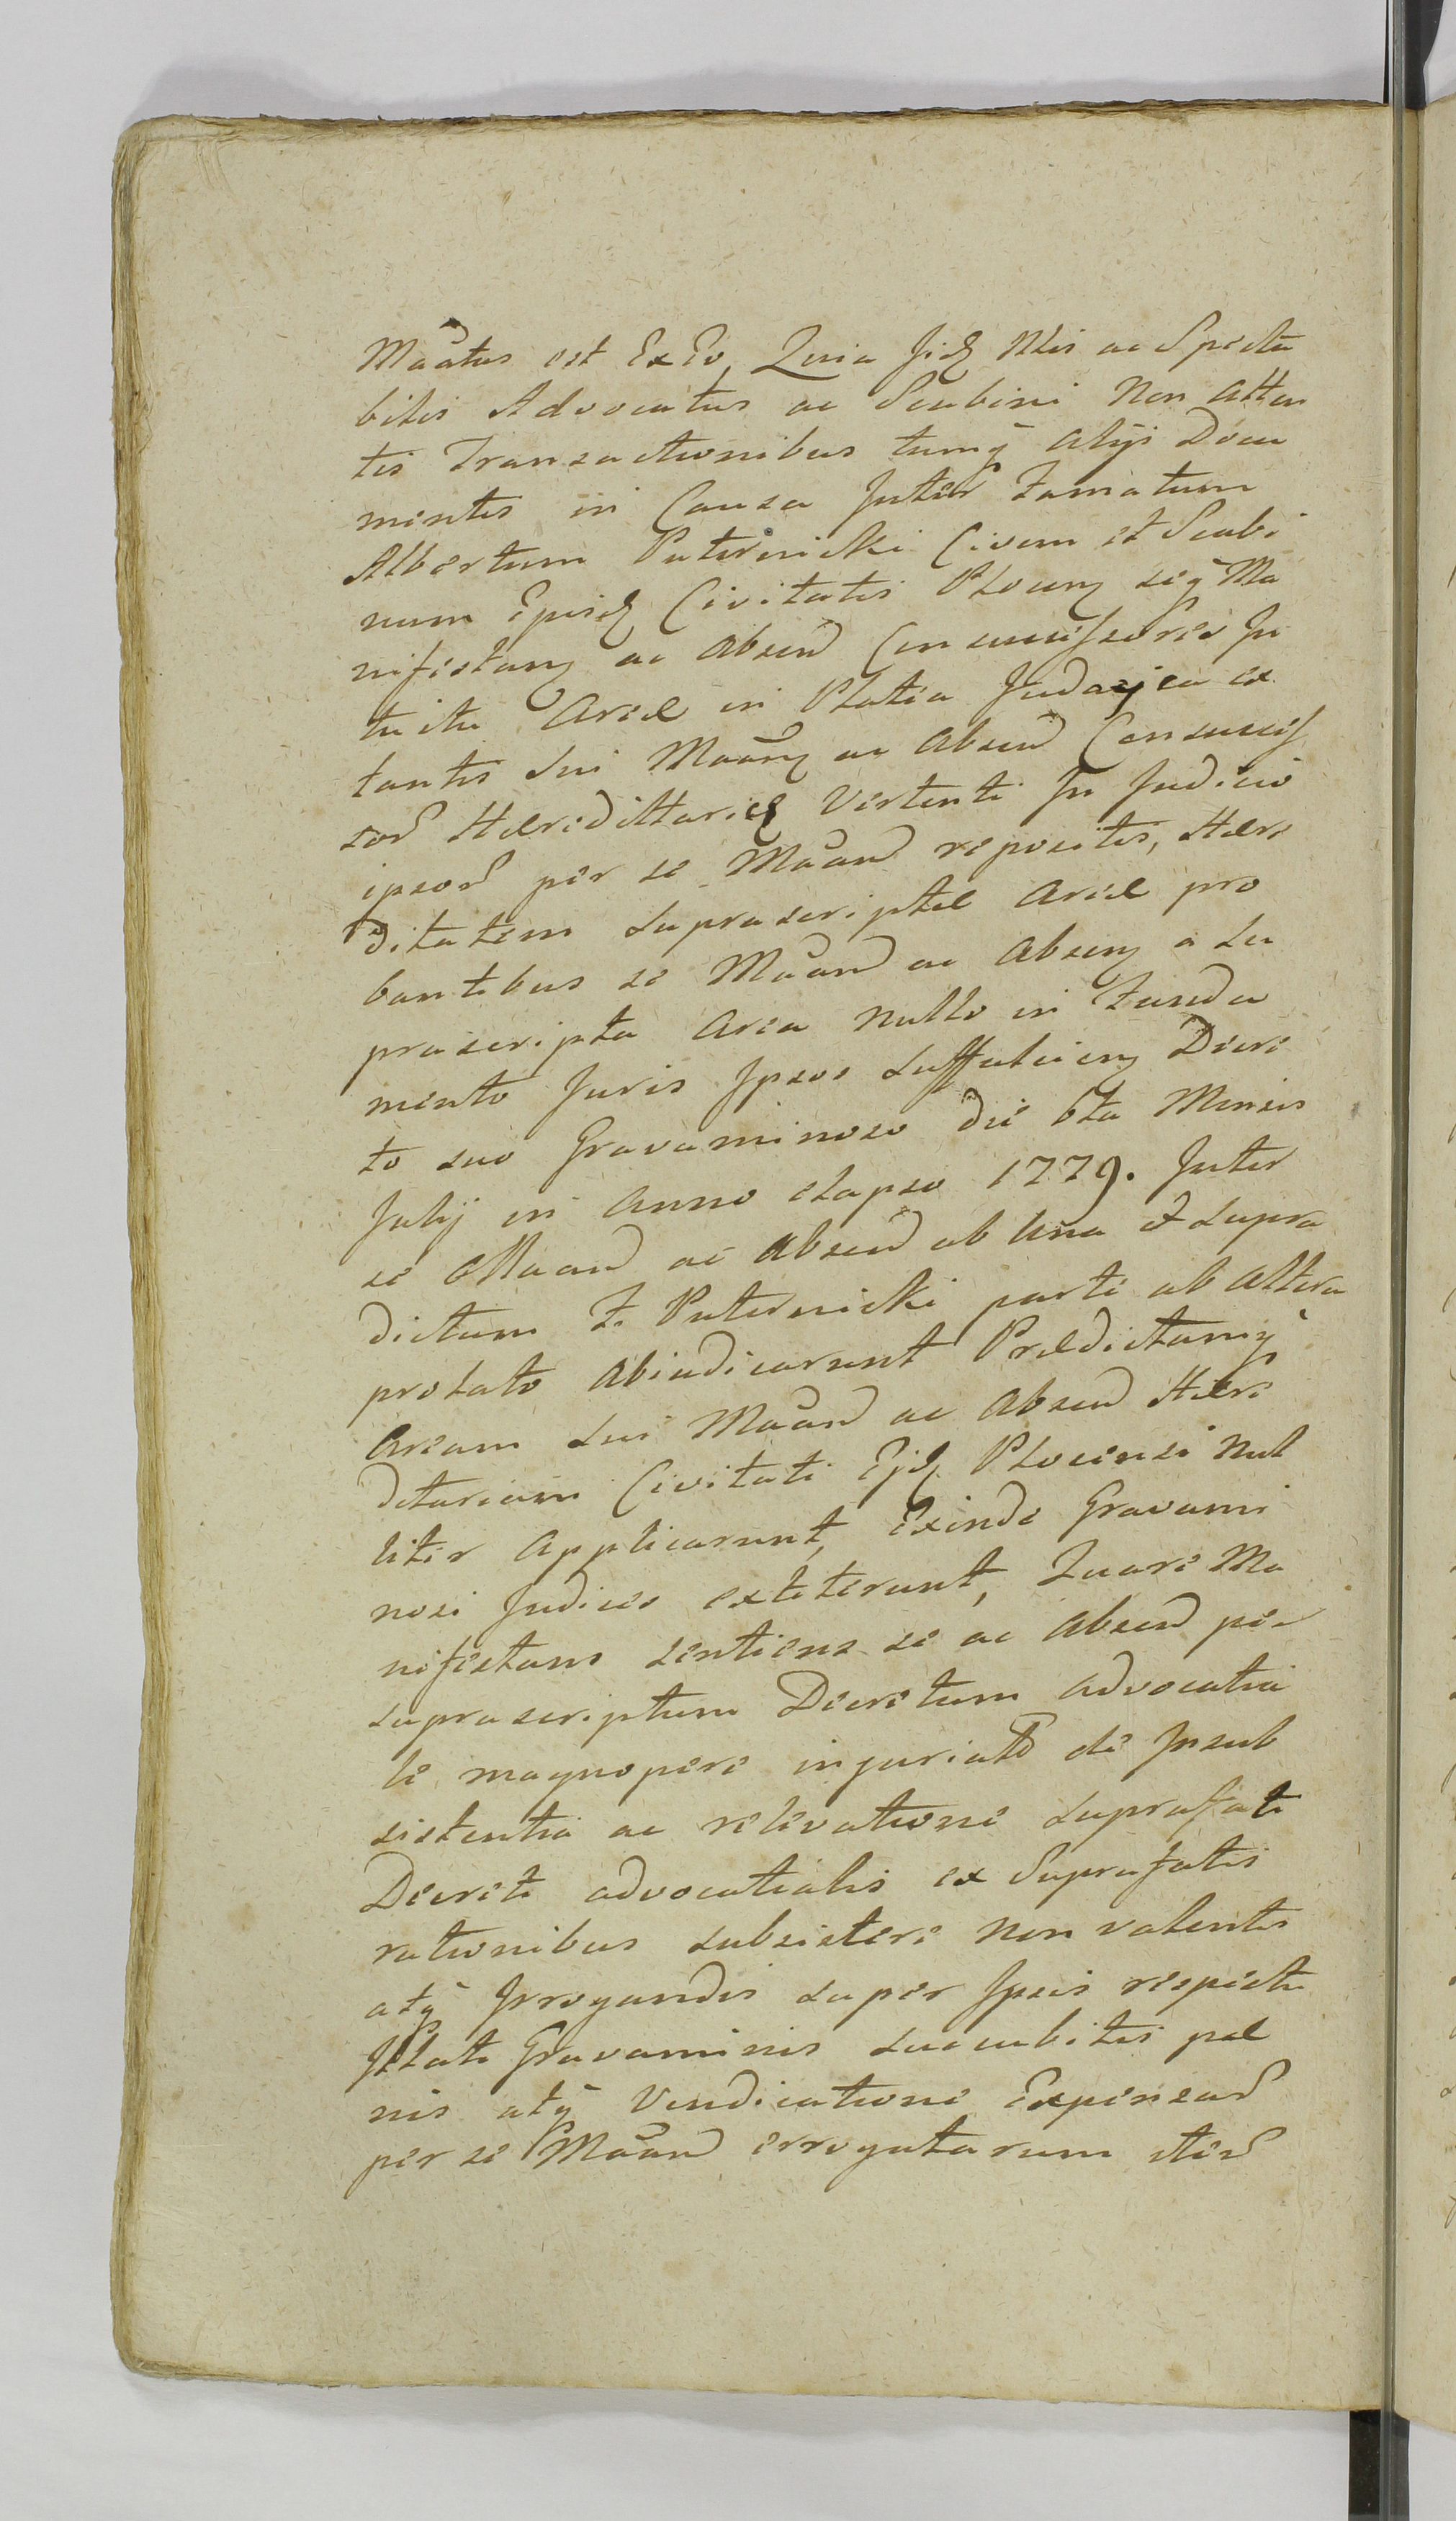 Mãatus est Ex Eo, Quia Jid Nlis ac Specta
bilis Advocatus ac Scabini Non atten
tis Transactionibus tumq alijs Docu
mentis in Causa Inter Famatum
Albertum Puternicki Civem et Scabi
num Ejusd Civitatis Ploceñ seq Ma
nifestanȝ ac Absen Consuccessores In
tuitu Areæ in Platea Judaica ex
tantis Sui Mãanȝ ac Absen Consuccess
sor Hæredittariæ Vertenti In Judicio
ipsor per se Mãan repositis, Hære
ditatem supra scriptæ Areæ pro
bantibus se Mãan ac Absenȝ a su
prascripta Area Nullo in Funda
mento Juris Ipsos suffulcienȝ Decre
to suo Gravaminoso die 6ta Mensis
Julij in Anno elapso 1779. Inter
se Mãan ac Absen ab Una et supra
dictum F. Puternicki parte ab altera
prolato Abiudicarunt Prædictamq
Aream Sui Mãan ac Absen Hære
ditariam Civitati Ejd Plocensi Nul
liter Applicarunt, Exinde Gravami
nosi Judices extiterunt, Quare Ma
nifestans sentiens se ac Absen per
suprascriptum Decretum Advocatia
le magnopere injuriat de Insub
sistentia ac relevatione suprafati
Decreti advocatialis ex Suprafatis
rationibus subsistere Non valentis
atq Irrogandis super Ipsis respectu
Illati Gravaminis succubitis pæ
nis atq Vendicatione Expensar
per se Mãan errogatarum iter